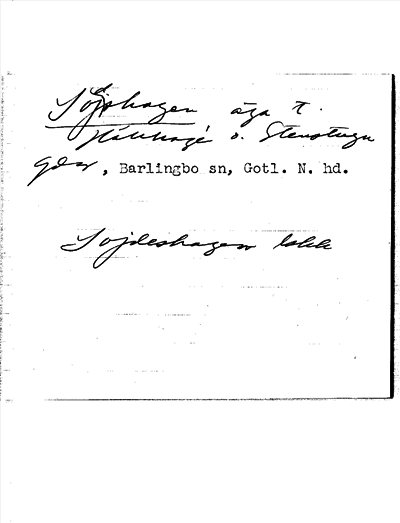 Söjdhagen äga t.
Hallhage o. Stenstugu
gdar, Barlingbo sn, Gotl. N. hd.
Sojdeshagen